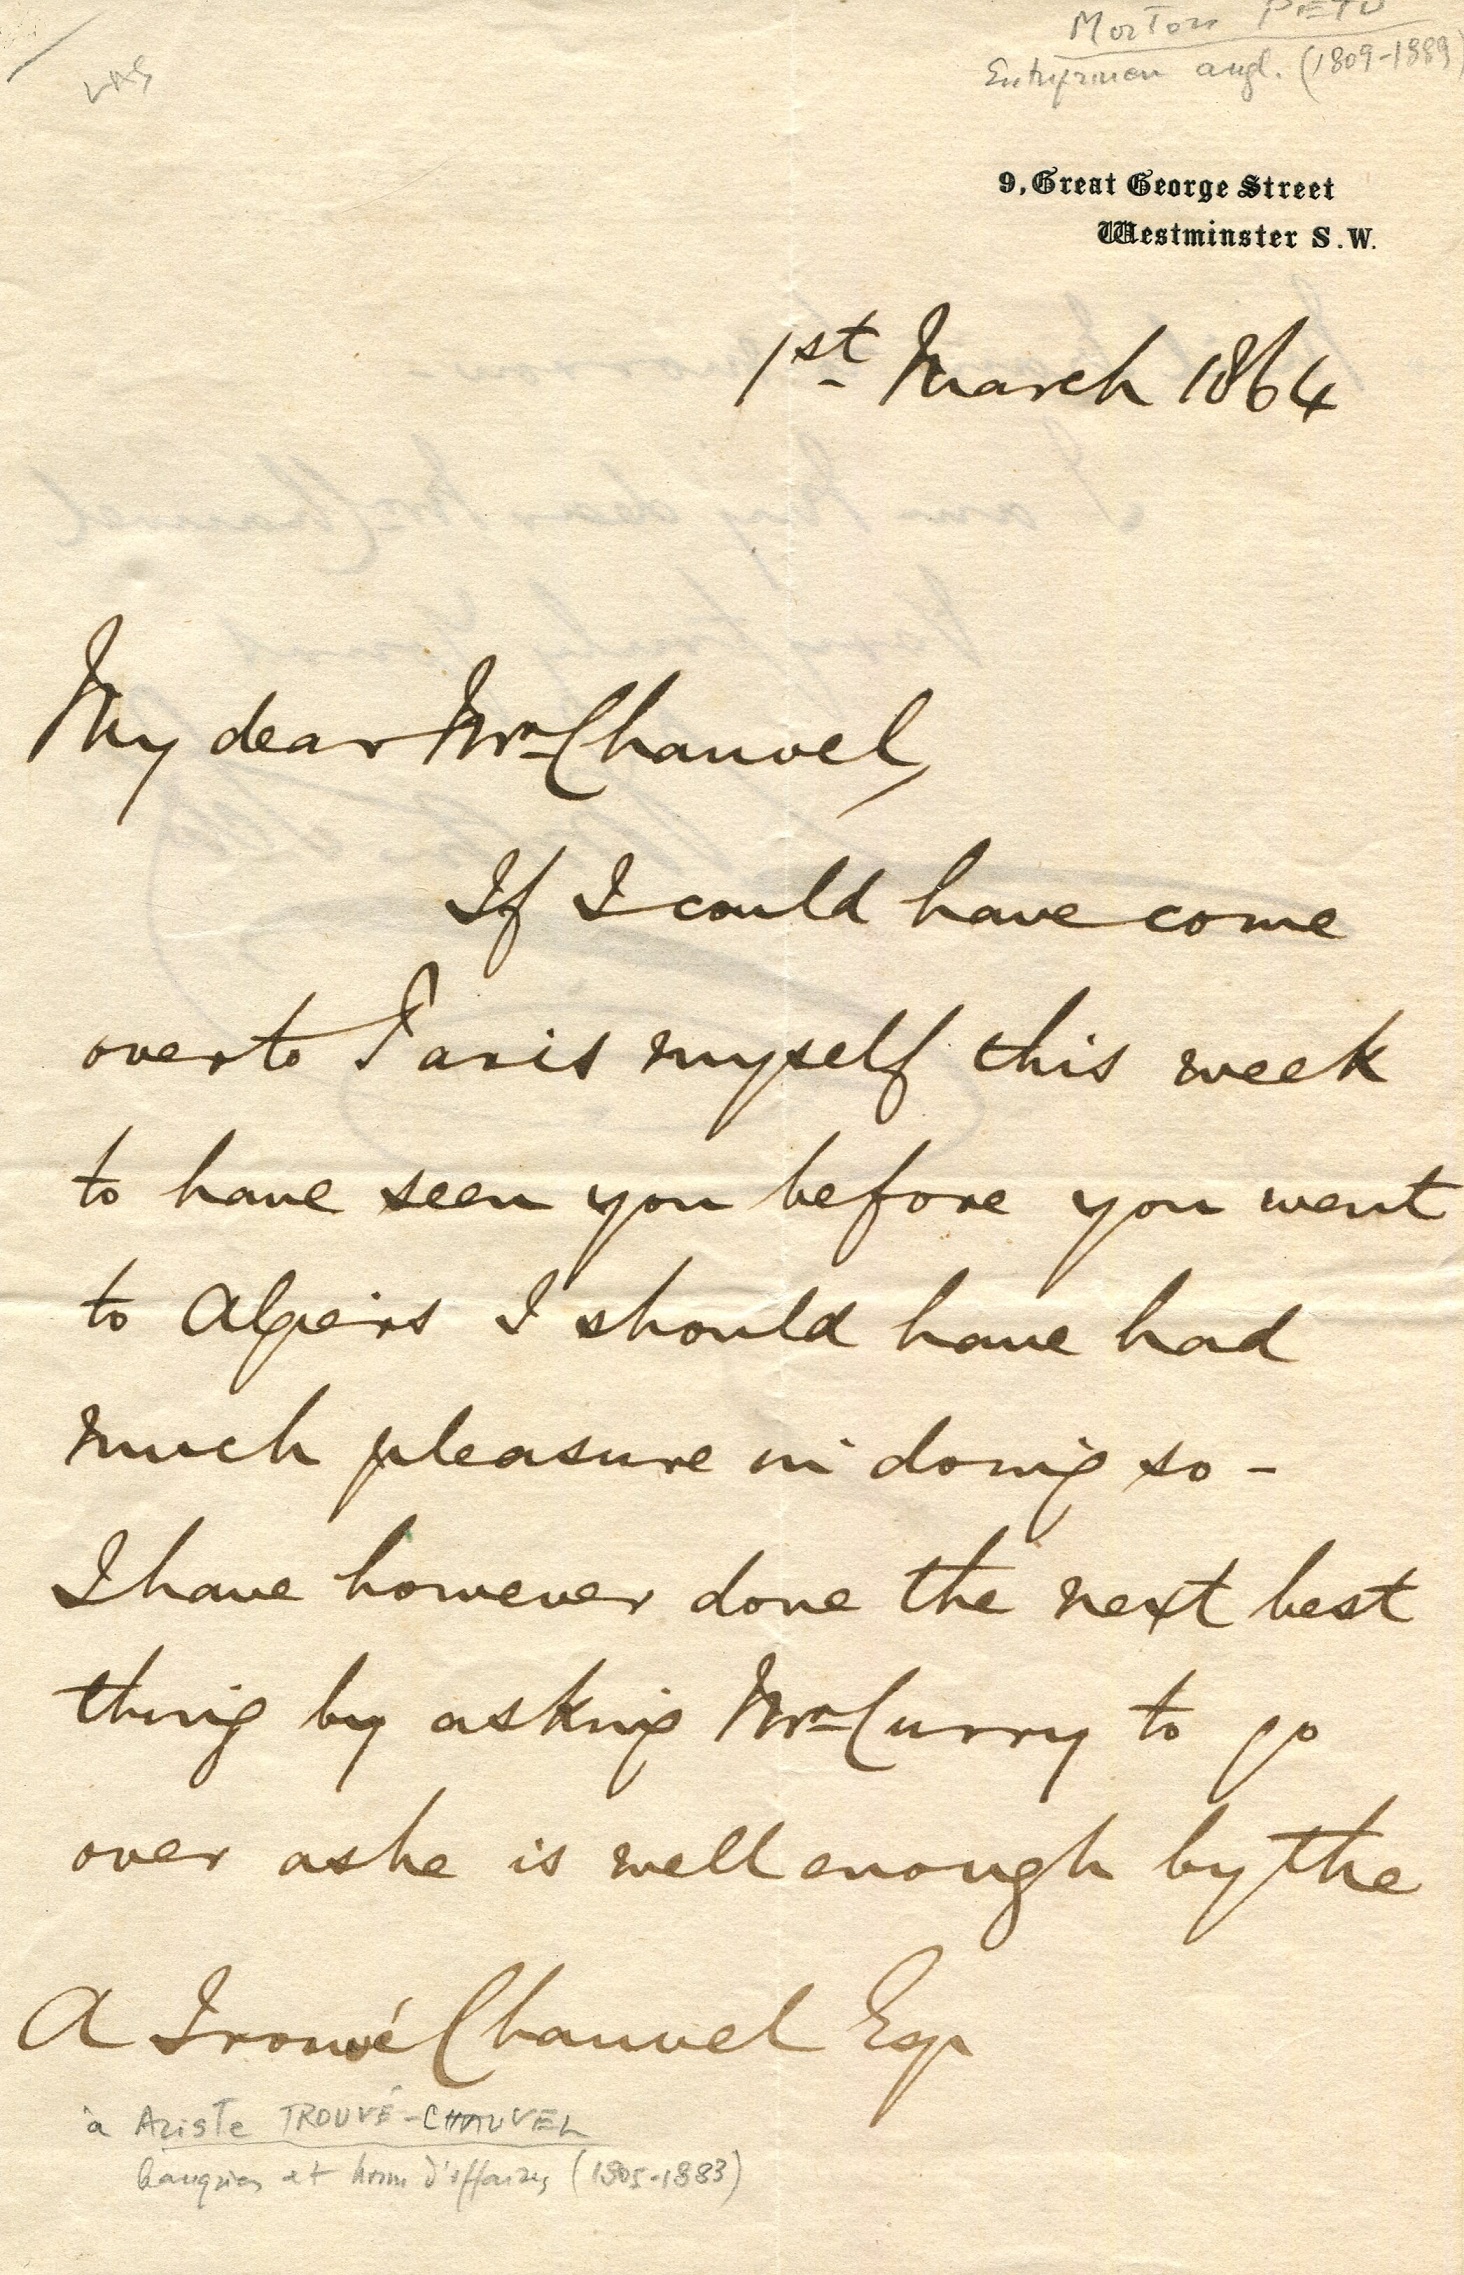 Morton PETO
Entrepreneur angl. (1809-1889)
LAS
9, Great George Street
Westminster S.W.
1st March 1864
My dear Mr Chauvel,
If I could have come
over to Paris myself this week
to have seen you before you went
to Algiers I should have had
much pleasure in doing so -
I have however done the next best
thing by asking Mr Curry to go
over as he is well enough by the
A Trouvé Chauvel Esq
à Ariste TROUVÉ-CHAUVEL
banquier et homme d'affaires (1805-1883)